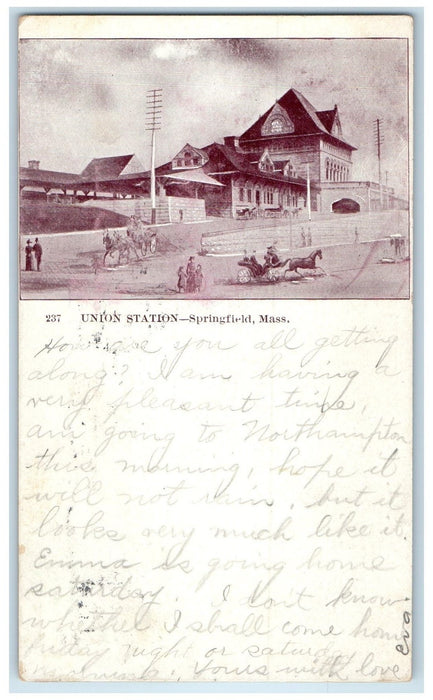 237 UNION STATION—Springfield, Mass.
How are you all getting
along? I am having a
very pleasant time,
am going to Northampton
this morning, hope it
will not rain, but it
looks very much like it.
Emma is going home
saturday. I don't know
whether I shall come home
friday night or saturday
Yours with love
Eva.